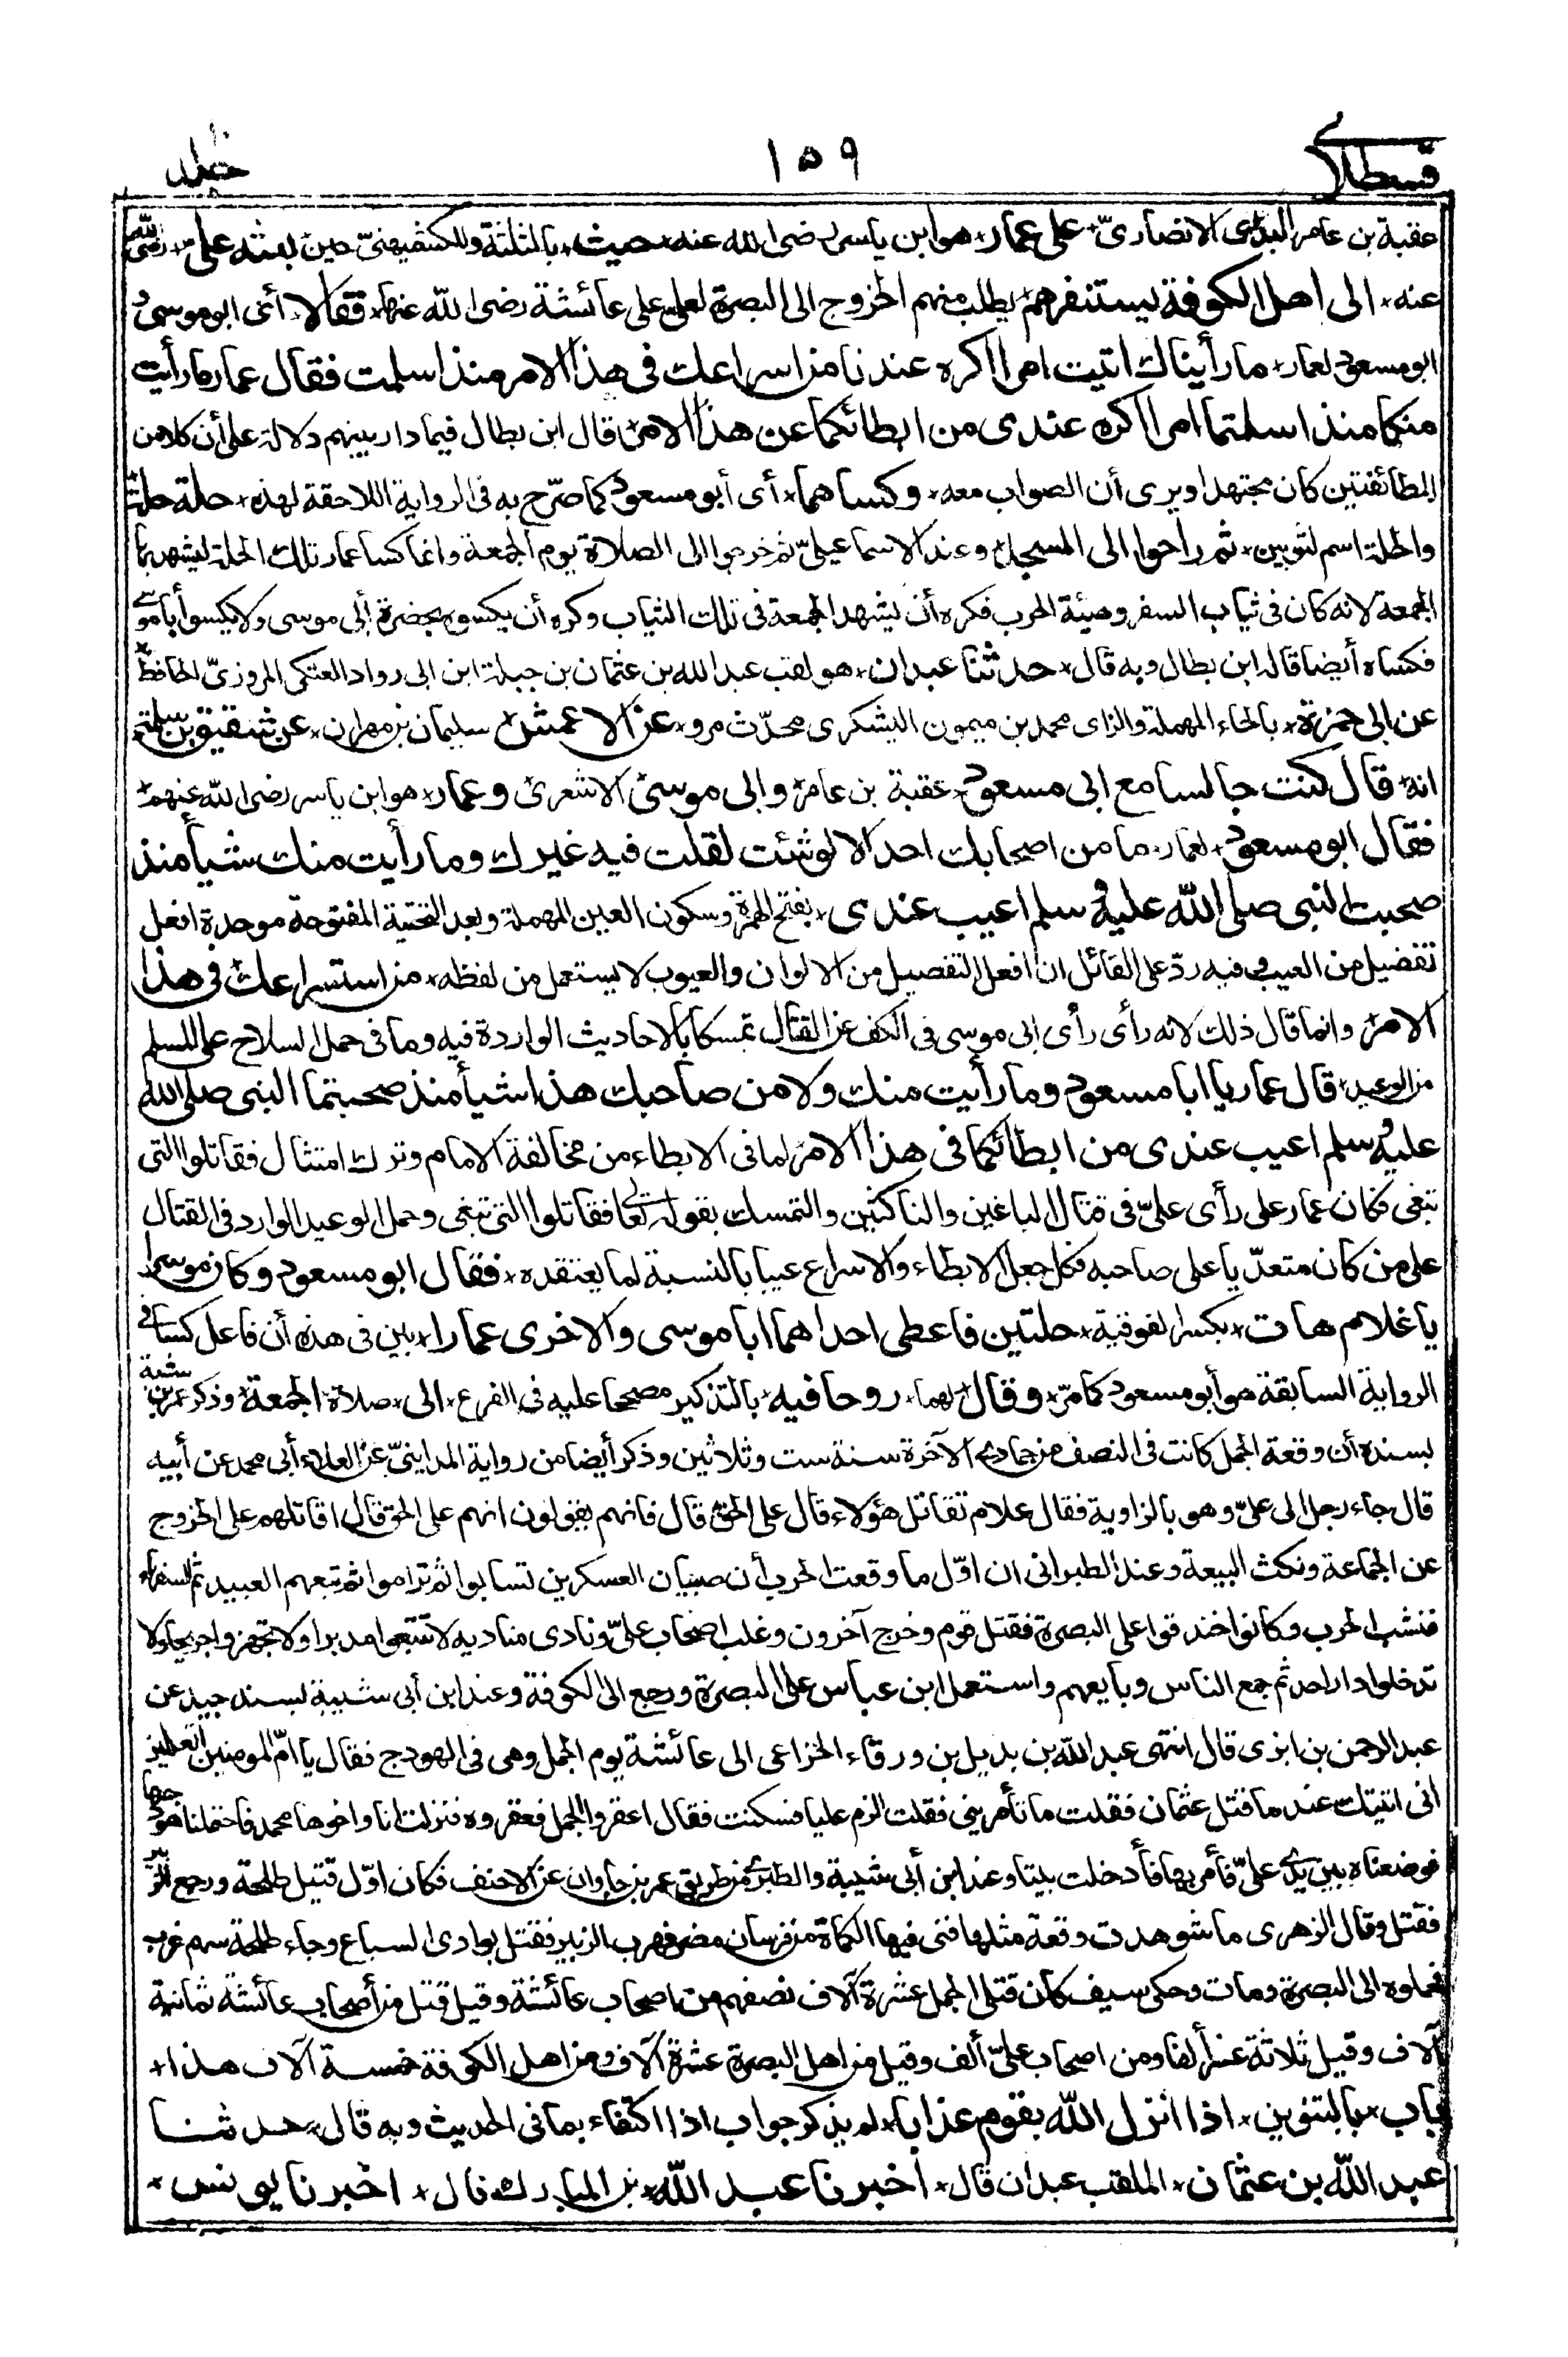 قسطلاني ١٥٩ جلد
عقبة بن عامر البدرى الانصاريّ * على عمار * هو ابن ياسر رضى الله عنه * حيث * بالمثلثة وللكشميهنيّ حين بعثه على * رضى الله
عنه * الى اهل الكوفة يستنفرهم * يطلب منهم الخروج الى البصرة لعلى على عائشة رضى الله عنها * فقالا * أى ابو موسى و
ابو مسعود لعمار * ما رأيناك اتيت امرا اكره عندنا من اسراعك فى هذا الامر منذ اسلمت فقال عمار ما رأيت
منكما منذ اسلمتما امرا اكره عندى من ابطائكما عن هذا الامر * قال ابن بطال فيما دار بينهم دلالة على أن كلا من
الطائفتين كان مجتهدا ويرى أن الصواب معه * وكساهما * أى أبو مسعود كما صرّح به فى الرواية اللاحقة لهذه * حلة حلة *
والحلة اسم لثوبين * ثم راحوا الى المسجد * وعند الاسماعيليّ ثم خرجوا الى الصلاة يوم الجمعة وانما كسا عمار تلك الحلة ليشهد بها
الجمعة لانه كان فى ثياب السفر وهيئة الحرب فكره أن يشهد الجمعة فى تلك الثياب وكره أن يكسوه بحضرة أبى موسى ولا يكسو أبا موسى
فكساه أيضا قاله ابن بطال وبه قال * حدثنا عبدان * هو لقب عبد الله بن عثمان بن جبلة ابن ابى رواد العتكى المروزيّ الحافظ *
عن ابى حمزة * بالحاء المهملة والزاى محمد بن ميمون اليشكرى محدّث مرو * عن الاعمش * سليمان بن مهران * عن شقيق بن سلمة *
انه * قال كنت جالسا مع ابى مسعود * عقبة بن عامر * وابى موسى * الاشعرى * وعمار * هو ابن ياسر رضى الله عنهم *
فقال ابو مسعود * لعمار * ما من اصحابك احد الا لو شئت لقلت فيه غيرك وما رأيت منك شيأ منذ
صحبت النبى صلى الله عليه وسلم اعيب عندى * بفتح الهمزة وسكون العين المهملة وبعد التحتية المفتوحة موحدة افعل
تفضيل من العيب فيه ردّ على القائل ان افعل التفضيل من الالوان والعيوب لا يستعمل من لفظه * من استسراعك فى هذا
الامر * وانما قال ذلك لانه رأى رأى ابى موسى فى الكف عن القتال تمسكا بالاحاديث الواردة فيه وما فى حمل السلاح على المسلم
من الوعيد * قال عمار يا ابا مسعود وما رأيت منك ولا من صاحبك هذا شيأ منذ صحبتما النبى صلى الله
عليه وسلم اعيب عندى من ابطائكما فى هذا الامر * لما فى الابطاء من مخالفة الامام وترك امتثال فقاتلوا التى
تبغى فكان عمار على رأى علىّ فى قتال الباغين والناكثين والتمسك بقوله تعالى فقاتلوا التى تبغى وحمل الوعيد الوارد فى القتال
على من كان متعدّيا على صاحبه فكل جعل الابطاء والاسراع عيبا بالنسبة لما يعتقده * فقال ابو مسعود وكان موسرا
يا غلام هات * بكسر الفوقية * حلتين فاعطى احداهما ابا موسى والاخرى عمارا * بين فى هذه أن فاعل كسا فى
الرواية السابقة هو أبو مسعود كما مرّ * وقال * لهما * روحا فيه * بالتذكير مصححا عليه فى الفرع * الى * صلاة * الجمعة * وذكر عمر بن شبة
بسنده أن وقعة الجمل كانت فى النصف من جمادى الآخرة سنة ست وثلاثين وذكر أيضا من رواية المداينىّ عن العلاء أبى محمد عن أبيه
قال جاء رجل الى علىّ وهو بالزاوية فقال علام تقاتل هؤلاء قال على الحق قال فانهم يقولون انهم على الحق قال اقاتلهم على الخروج
عن الجماعة ونكث البيعة وعند الطبرانى ان اوّل ما وقعت الحرب أن صبيان العسكرين تسابوا ثم تراموا ثم تبعهم العبيد ثم السفهاء
فنشب الحرب وكانوا خندقوا على البصرة فقتل قوم وخرج آخرون وغلب اصحاب علىّ ونادى مناديه لا تتبعوا مدبرا ولا تجهزوا جريحا ولا
تدخلوا دار احد ثم جمع الناس وبايعهم واستعمل ابن عباس على البصرة ورجع الى الكوفة وعند ابن أبى شيبة بسند جيد عن
عبد الرحمن بن ابزى قال انتهى عبد الله بن بديل بن ورقاء الخزاعى الى عائشة يوم الجمل وهى فى الهودج فقال يا امّ المومنين اتعلمين
انى اتيتك عند ما قتل عثمان فقلت ما تأمرينى فقلت الزم عليا فسكتت فقال اعقروا الجمل فعقروه فنزلت انا واخوها محمد فاحتملنا هودجها
فوضعناه بين يدى علىّ فأمر بها فأدخلت بيتا وعند ابن أبى شيبة والطبرى من طريق عمر بن جاوان عن الاحنف فكان اوّل قتيل طلحة ورجع الزبير
فقتل وقال الزهرى ما شوهدت وقعة مثلها فنى فيها الكماة من فرسان مضر فهرب الزبير فقتل بوادى السباع وجاء طلحة سهم غرب
فحملوه الى البصرة ومات وحكى سيف كان قتلى الجمل عشرة آلاف نصفهم من اصحاب عائشة وقيل قتل من أصحاب عائشة ثمانية
آلاف وقيل ثلاثة عشر ألفا ومن اصحاب علىّ ألف وقيل من اهل البصرة عشرة آلاف ومن اهل الكوفة خمسة آلاف هذا *
باب * بالتنوين * اذا انزل الله بقوم عذابا * لم يذكر جواب اذا اكتفاء بما فى الحديث وبه قال * حدثنا
عبد الله بن عثمان * الملقب عبدان قال * اخبرنا عبد الله * بن المبارك قال * اخبرنا يونس *